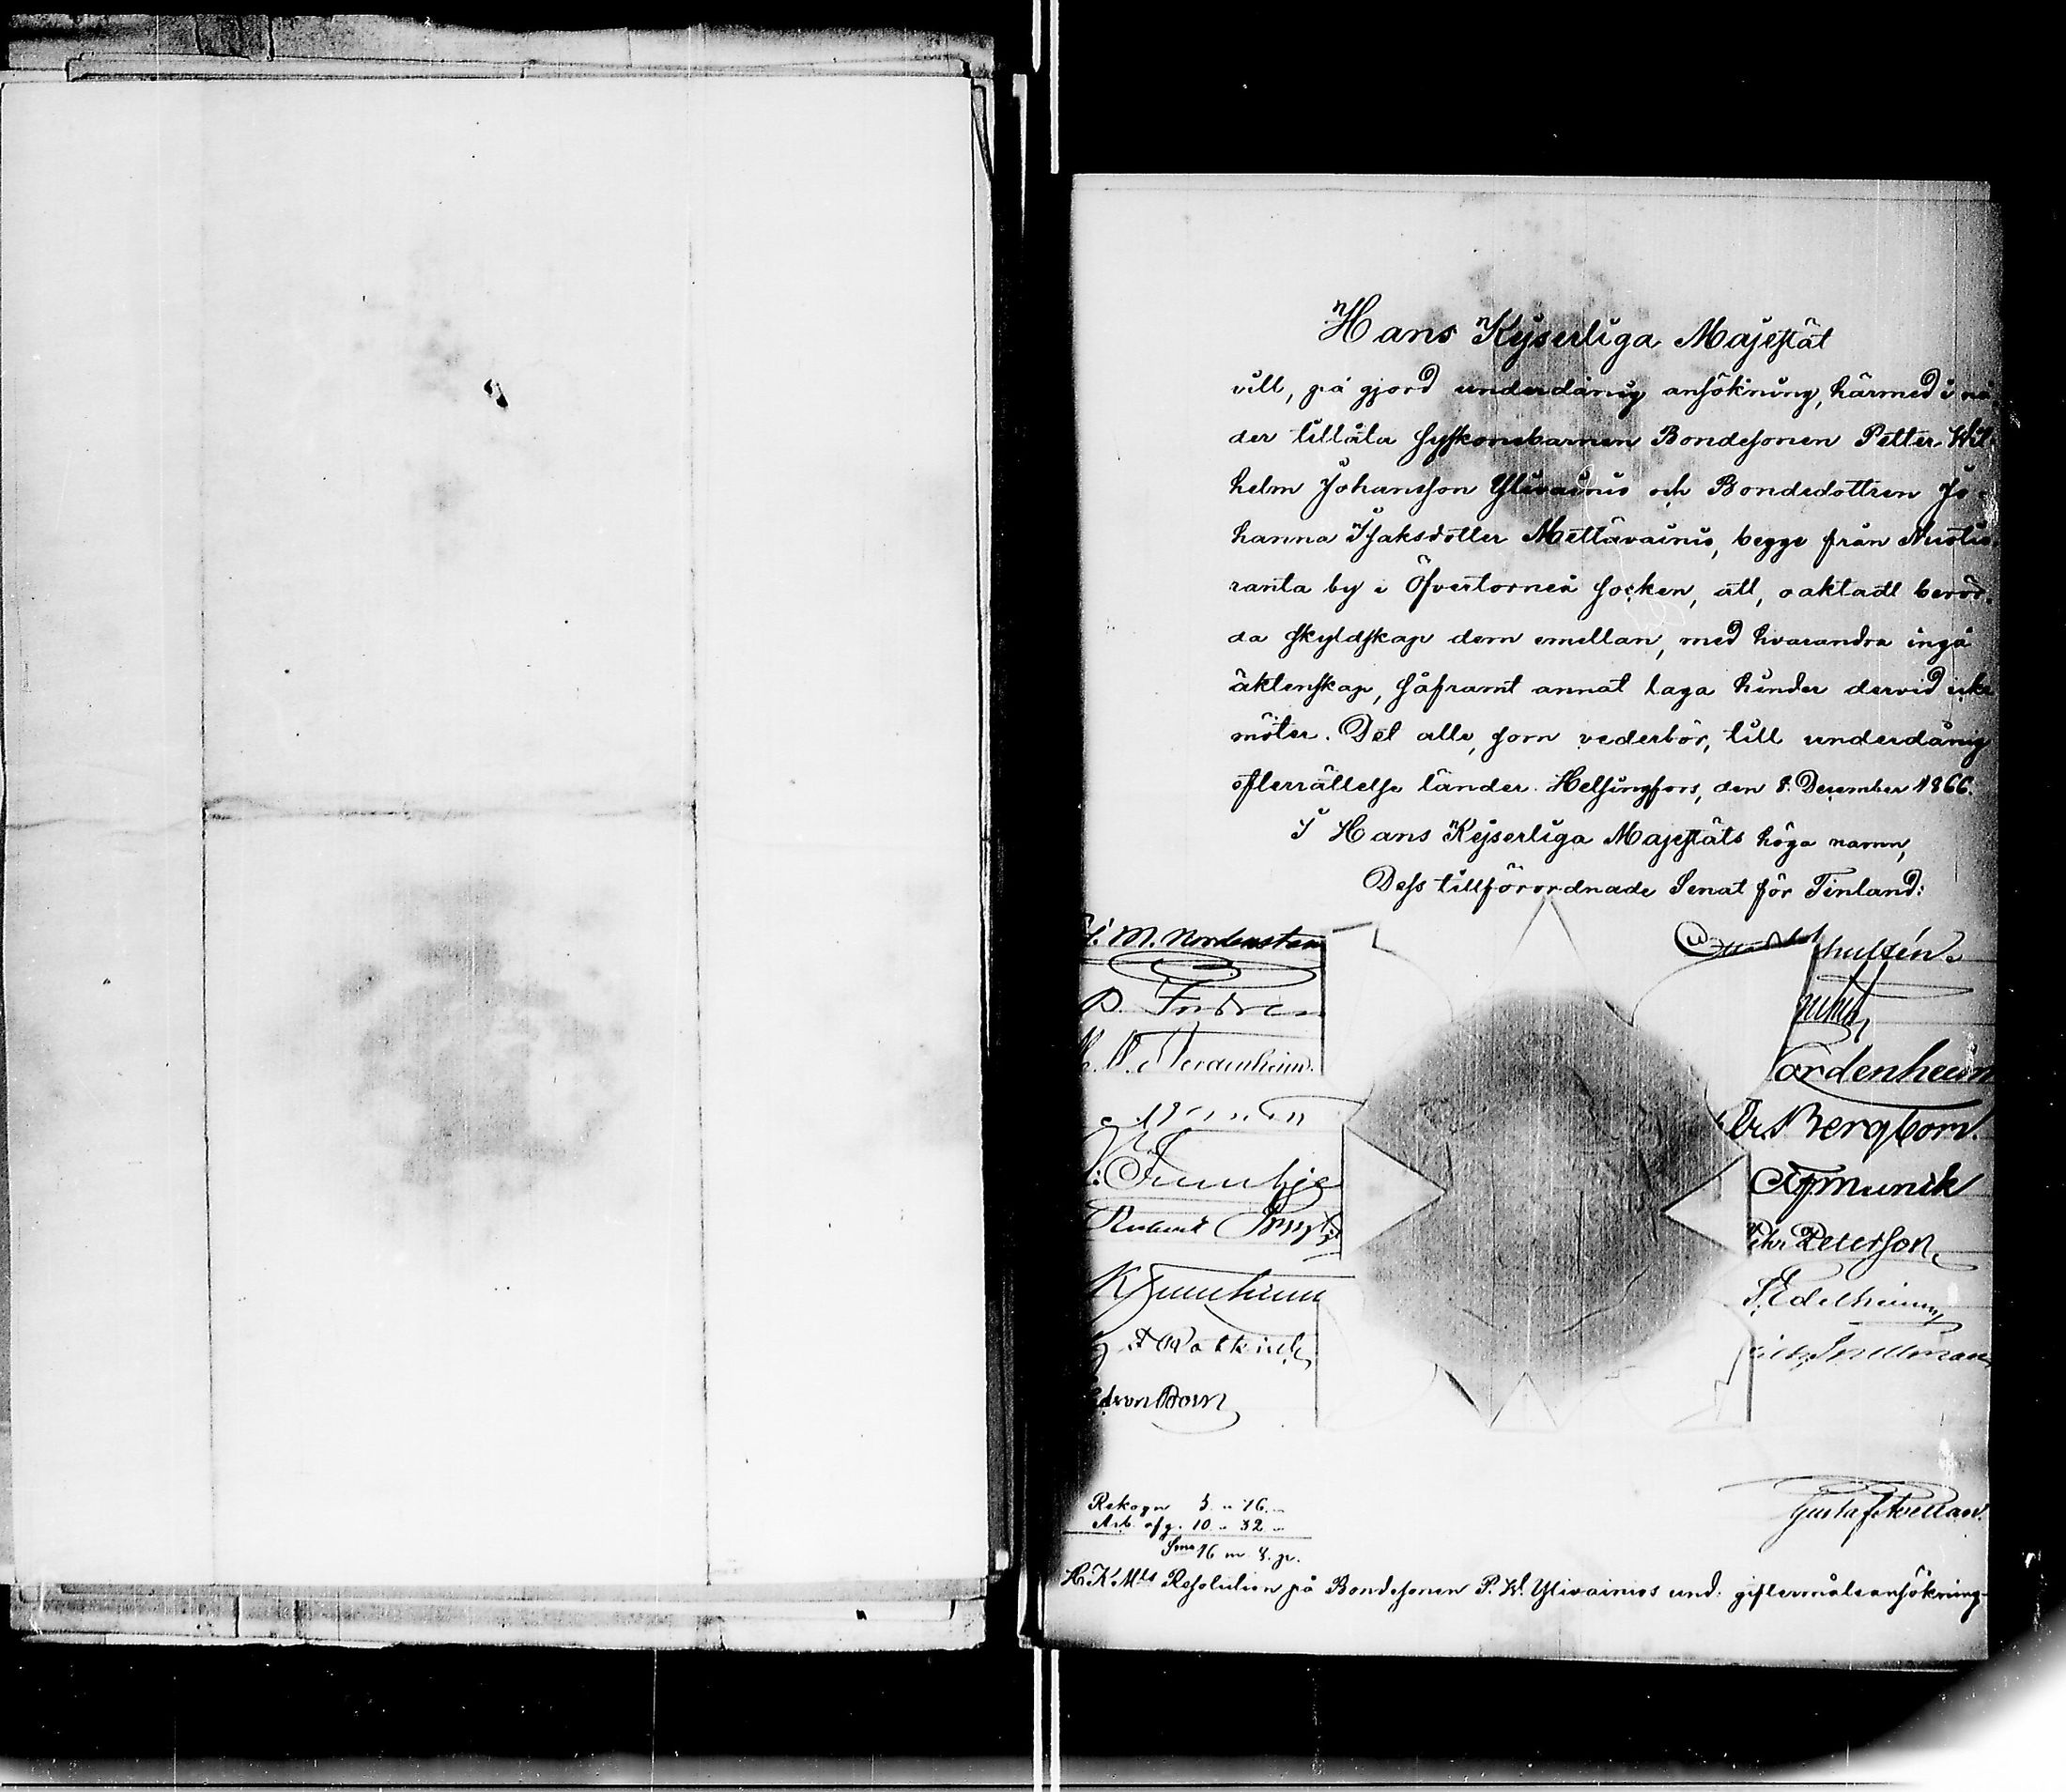 Hans Kejserliga Majestät
vill, på gjord underdånig ansökning, härmed i nå-
der tillåta syskonebarnen Bondesonen Petter Wil-
helm Johansson Ylivainio och Bondedottren Jo-
hanna Isaksdotter Mettävainio, begge från Nuotio-
ranta by i Öfvertorneå socken, att, oaktadt berör-
da skyldskap dem emellan, med hvarandra ingå
äktenskap, såframt annat laga hinder dervid icke
möter. Det alle, som vederbör, till underdånig
efterrättelse länder. Helsingfors, den 8. December 1866.
I Hans Kejserliga Majestäts höga namn,
Dess tillförordnade Senat för Finland:
J. M. Nordenstam
Nordenheim
Bergbom
Peterson
S. Edelheim
Snellman
von Born
Rekogn 5 " 76 "
Arb. afg. 10 " 32 "
Sma 16 m 8. p.
Gustaf Avellan.
H. K. Mts Resolution på Bondesonen P. W. Ylivainios und. giftermålsansökning